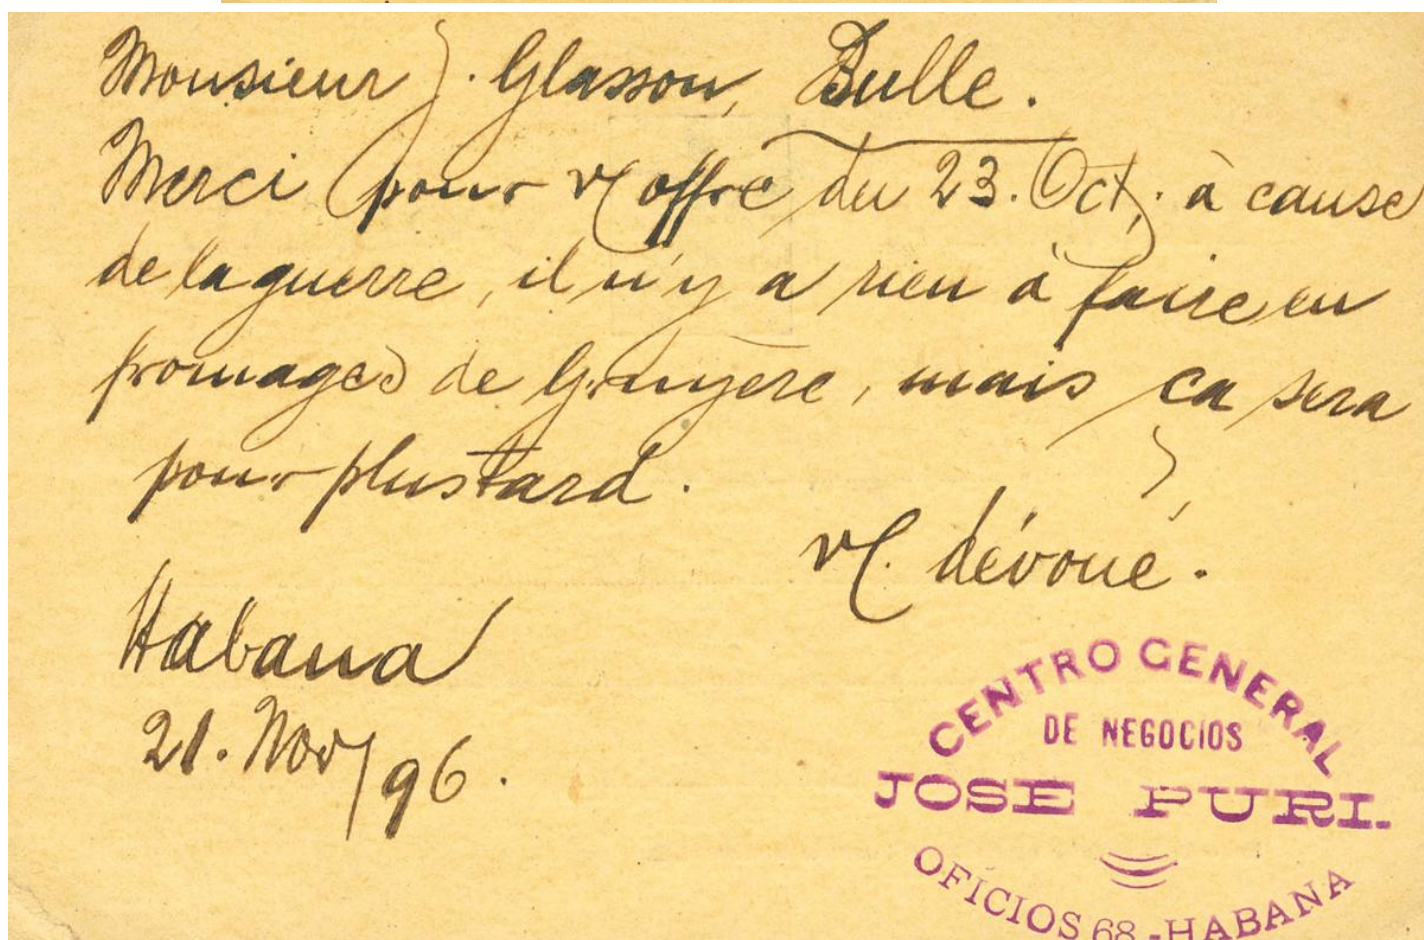 Monsieur J. Glasson, Bulle.
Merci pour v/ offre du 23. Oct, à cause
de la guerre, il n'y a rien à faire en
fromages de Gruyère, mais ça sera
pour plustard.
v/. dévoué.
Habana
21. Nov/96.
CENTRO GENERAL
DE NEGOCIOS
JOSE PURI.
OFICIOS 68 - HABANA